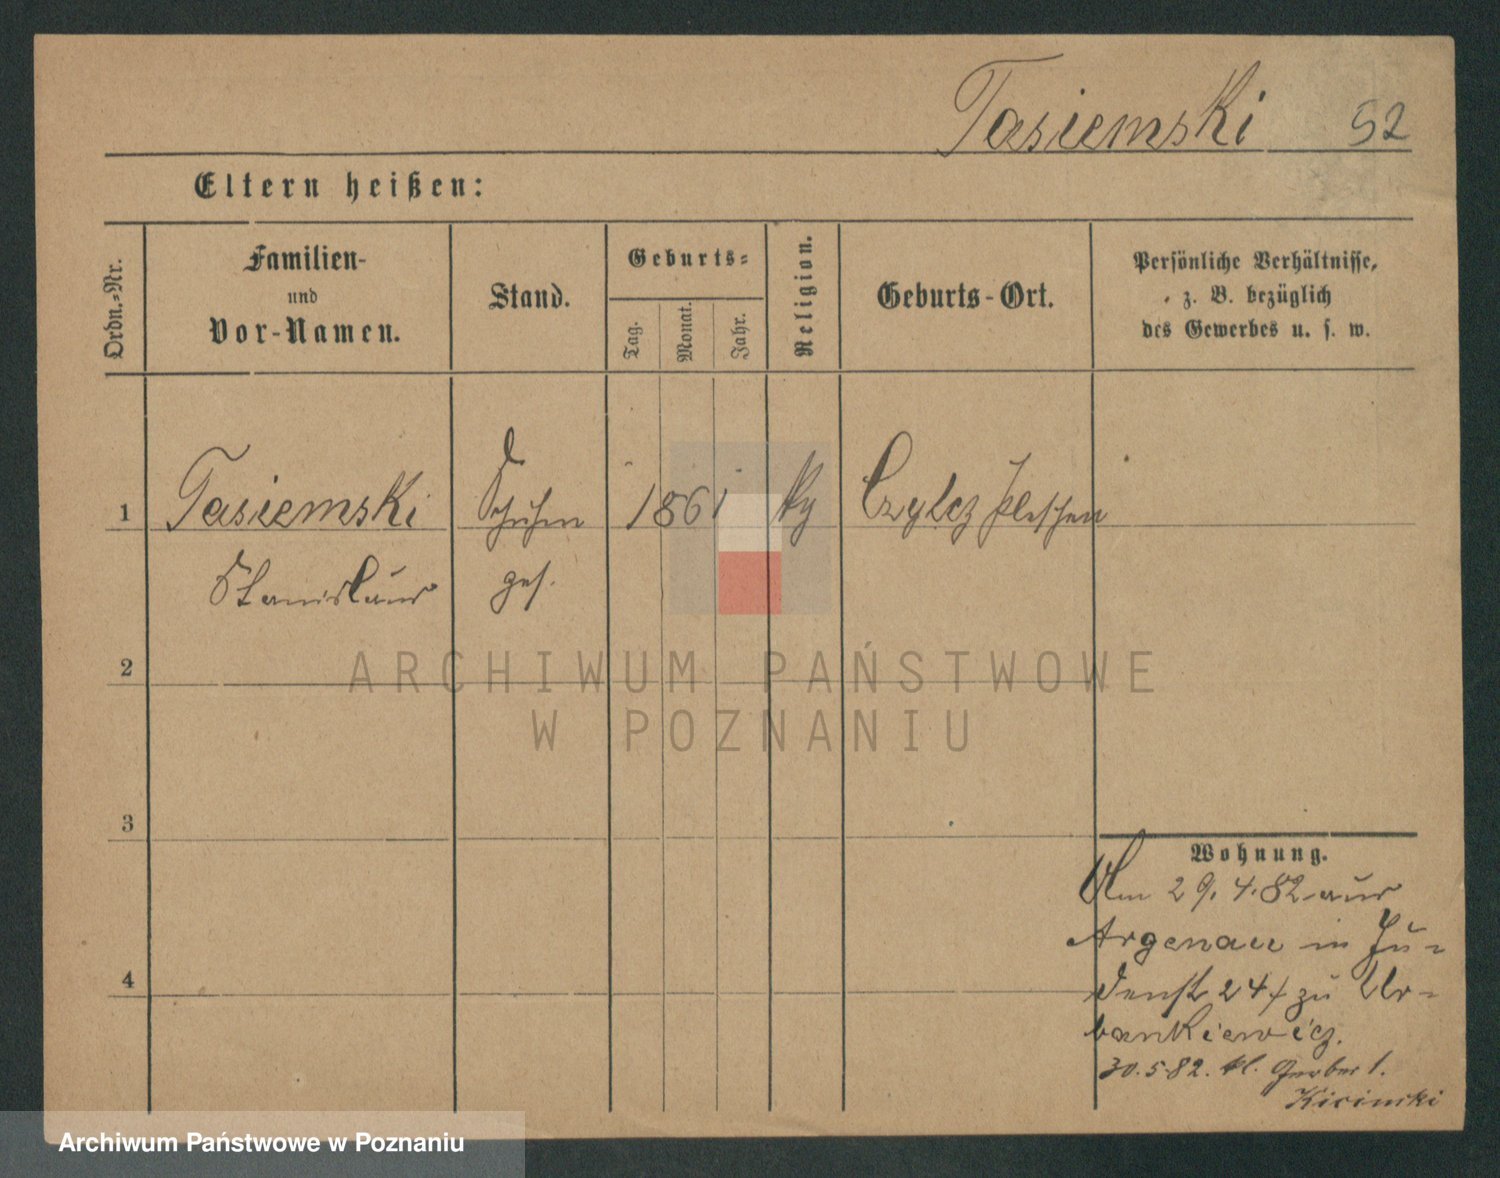 Tasiemski 52
Eltern heißen:
Ordn.-Nr.
Familien-
und
Vor-Namen.
Stand.
Geburts-
Tag.
Monat.
Jahr.
Religion.
Geburts-Ort.
Persönliche Verhältnisse,
z. B. bezüglich
des Gewerbes u. s. w.
1 Tasiemski Schuhm 1861 Pleschen
Stanislaus ges.
2
3
4
Wohnung.
Am 29.4.82 aus
Argenau in Ju-
denstr 24 zu Ur-
bankiewicz.
30.5.82. kl. Gerber 1.
ARCHIWUM PAŃSTWOWE
W POZNANIU
Archiwum Państwowe w Poznaniu